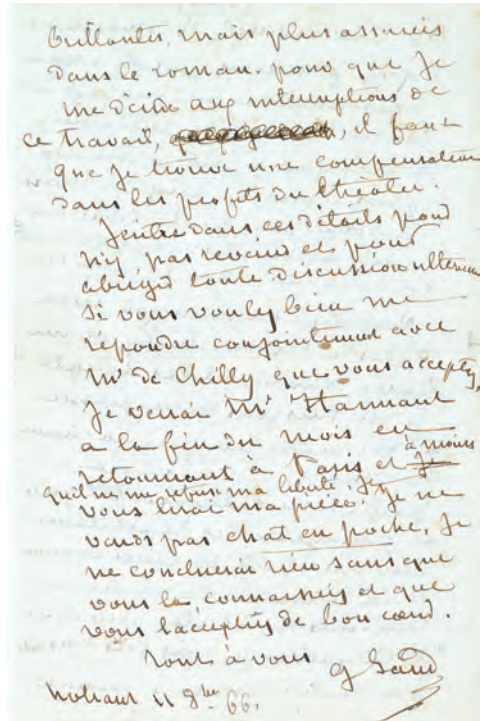 brillantes, mais plus assurées
dans le roman. pour que je
me décide aux interruptions de
ce travail, il faut
que je trouve une compensation
dans les profits du théâtre.
J'entre dans ces détails pour
n'y pas revenir et pour
abréger toute discussion ultérieure
si vous voulez bien me
répondre conjointement avec
Mr de Chilly que vous acceptez,
je verrai Mr Harmant
a la fin du mois en
retournant à Paris et à moins
qu'il ne me refuse ma liberté, je
vous lirai ma pièce. Je ne
vends pas chat en poche, je
ne conclurai rien sans que
vous la connaissiez et que
vous l'acceptiez de bon cœur.
Tout à vous
G Sand
Nohant 11 8bre 66.